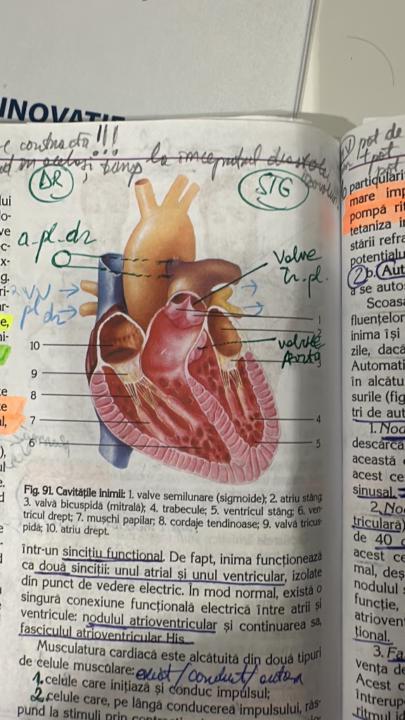 INOVAȚI
e contractă!!!
la începutul diastolei
DR
STG
a.pl.dr
Valve
Tr.pl.
pl dr
valvele
Aortă
1
2
3
10
9
8
7
6
4
5
Fig. 91. Cavitățile inimii: 1. valve semilunare (sigmoide); 2. atriu stâng
3. valvă bicuspidă (mitrală); 4. trabecule; 5. ventricul stâng; 6. ven-
tricul drept; 7. mușchi papilar; 8. cordaje tendinoase; 9. valvă tricus-
pidă; 10. atriu drept.
într-un sincițiu funcțional. De fapt, inima funcționează
ca două sinciții: unul atrial și unul ventricular, izolate
din punct de vedere electric. În mod normal, există o
singură conexiune funcțională electrică între atrii și
ventricule: nodulul atrioventricular și continuarea sa,
fasciculul atrioventricular His.
Musculatura cardiacă este alcătuită din două tipuri
de celule musculare: excit/conduct/autom
1. celule care inițiază și conduc impulsul;
2. celule care, pe lângă conducerea impulsului, răs-
pund la stimuli prin
pot de
particulari
mare imp
pompă rit
tetaniza în
stării refra
potențialu
2 b. Aut
a se auto
Scoasă
fluențelor
inima își
zile, dacă
Automati
în alcătu
surile (fig
tri de aut
1. Nod
descărca
această
acest ce
sinusal.
2. No
triculară)
de 40
acest ce
mal, deș
nodulul
funcție,
atrioven
țional.
3. Fa
vența de
Acest c
întrerup